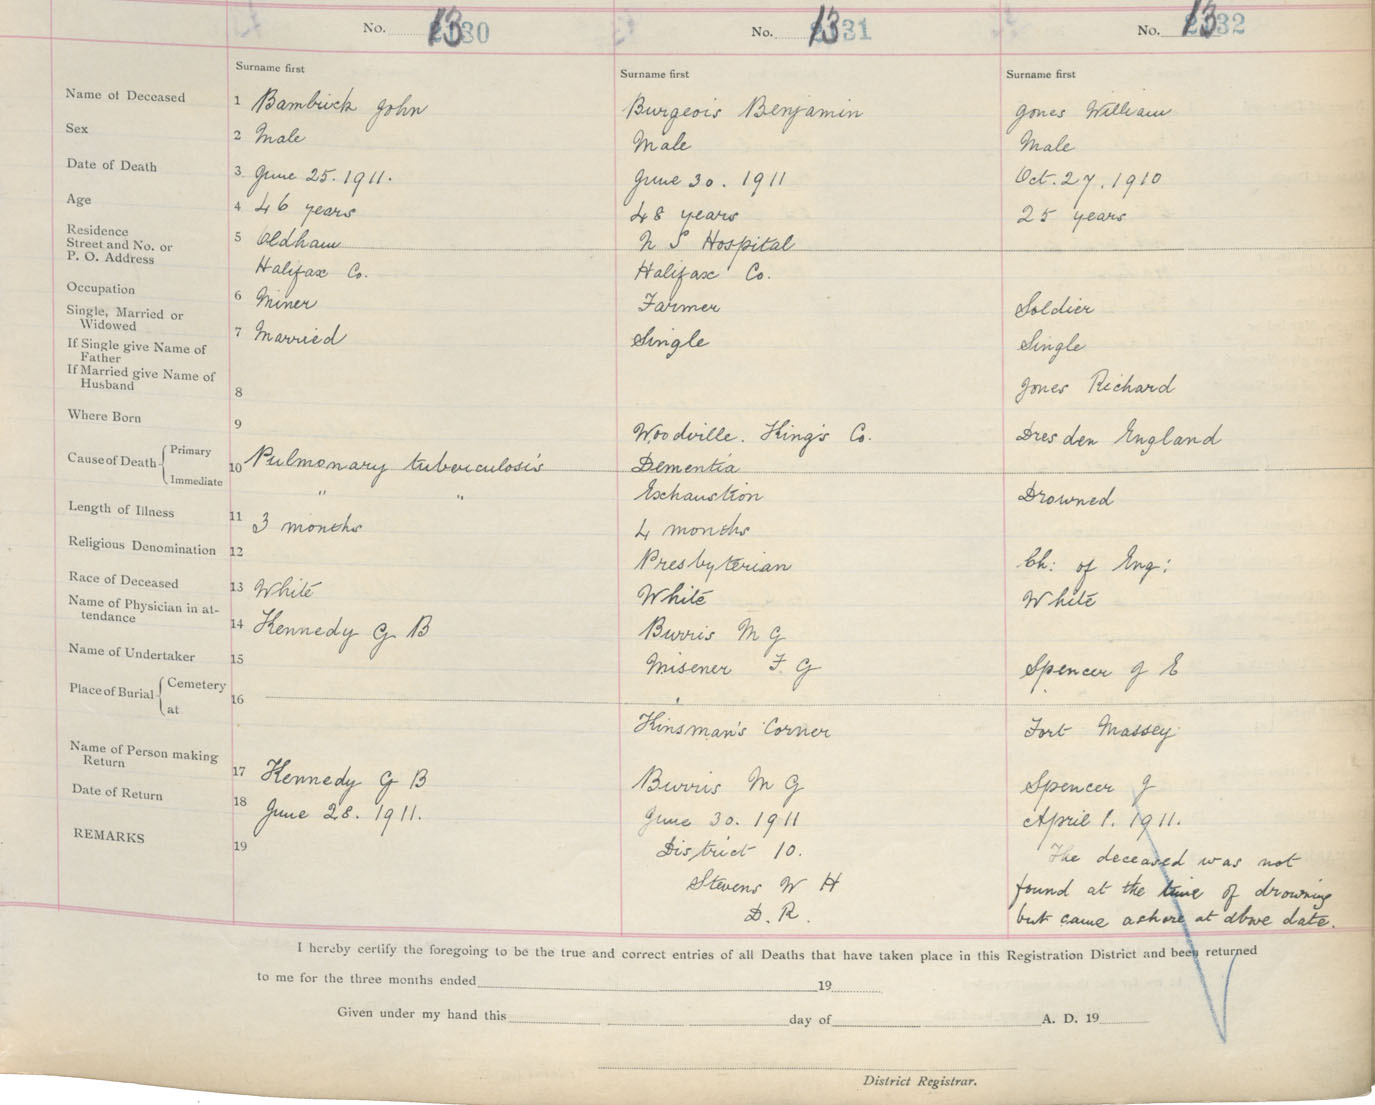 No. 1330
No. 1331
No. 1332
Surname first
Surname first
Surname first
Name of Deceased 1 Bambrick John
Burgeois Benjamin
Jones William
Sex 2 Male
Male
Male
Date of Death 3 June 25. 1911.
June 30. 1911
Oct. 27. 1910
Age 4 46 years
48 years
25 years
Residence
Street and No. or
P. O. Address
5 Oldham
Halifax Co.
N S Hospital
Halifax Co.
Occupation 6 Miner
Farmer
Soldier
Single, Married or
Widowed
7 Married
Single
Single
If Single give Name of
Father
If Married give Name of
Husband
8
Jones Richard
Where Born 9
Woodville. King's Co.
Dresden England
Cause of Death Primary
Immediate
10 Pulmonary tuberculosis
" "
Dementia
Exhaustion
Drowned
Length of Illness 11 3 months
4 months
Religious Denomination 12
Presbyterian
Ch: of Eng:
Race of Deceased 13 White
White
White
Name of Physician in at-
tendance
14 Kennedy G B
Burris M G
Name of Undertaker 15
Misener F G
Spencer J E
Place of Burial Cemetery
at
16
Kinsman's Corner
Fort Massey
Name of Person making
Return
17 Kennedy G B
Burris M G
Spencer J
Date of Return 18 June 28. 1911.
June 30. 1911
April 1. 1911.
REMARKS 19
District 10.
Stevens W H
D. R.
The deceased was not
found at the time of drowning
but came ashore at above date.
I hereby certify the foregoing to be the true and correct entries of all Deaths that have taken place in this Registration District and been returned
to me for the three months ended 19
Given under my hand this day of A. D. 19
District Registrar.